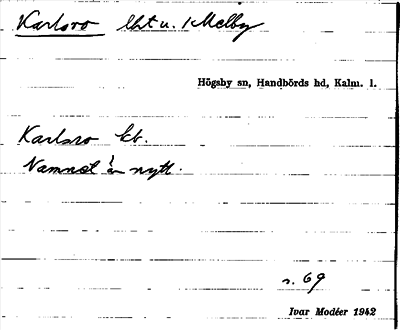 Karlsro lht u. Melby
Högsby sn, Handbörds hd, Kalm. l.
Karlsro
Namnet är nytt.
s. 69
Ivar Modéer 1942